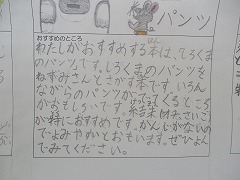 パンツ
おすすめのところ
わたしがおすすめする本は、しろくま
のパンツです。しろくまのパンツを
ねずみさんとさがす本です。いろん
ながらのパンツがでてくるところ
がおもしろいです。結末は
が特におすすめです。かんじがないの
でよみやすいとおもいます。ぜひよん
でみてください。